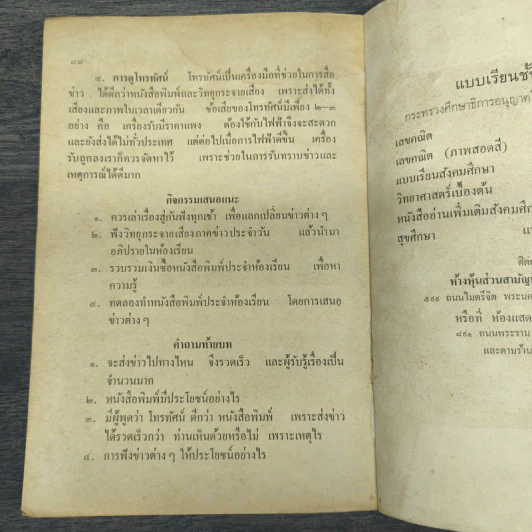 ๘๘
๔. การดูโทรทัศน์ โทรทัศน์เป็นเครื่องมือที่ช่วยในการสื่อ
ข่าว ได้ดีกว่าหนังสือพิมพ์และวิทยุกระจายเสียง เพราะส่งได้ทั้ง
เสียงและภาพในเวลาเดียวกัน ข้อเสียของโทรทัศน์มีเพียง ๒–๓
อย่าง คือ เครื่องรับมีราคาแพง ต้องใช้กับไฟฟ้าจึงจะสะดวก
และยังส่งได้ไม่ทั่วประเทศ แต่ต่อไปเมื่อการไฟฟ้าดีขึ้น เครื่อง
รับถูกลงเราก็ควรจัดหาไว้ เพราะช่วยในการรับทราบข่าวและ
เหตุการณ์ได้ดีมาก
กิจกรรมเสนอแนะ
๑. ควรเล่าเรื่องสู่กันฟังทุกเช้า เพื่อแลกเปลี่ยนข่าวต่าง ๆ
๒. ฟังวิทยุกระจายเสียงภาคข่าวประจำวัน แล้วนำมา
อภิปรายในห้องเรียน
๓. รวบรวมเงินซื้อหนังสือพิมพ์ประจำห้องเรียน เพื่อหา
ความรู้
๔. ทดลองทำหนังสือพิมพ์ประจำห้องเรียน โดยการเสนอ
ข่าวต่าง ๆ
คำถามท้ายบท
๑. จะส่งข่าวไปทางไหน จึงรวดเร็ว และผู้รับรู้เรื่องเป็น
จำนวนมาก
๒. หนังสือพิมพ์มีประโยชน์อย่างไร
๓. มีผู้พูดว่า โทรทัศน์ ดีกว่า หนังสือพิมพ์ เพราะส่งข่าว
ได้รวดเร็วกว่า ท่านเห็นด้วยหรือไม่ เพราะเหตุไร
๔. การฟังข่าวต่าง ๆ ให้ประโยชน์อย่างไร
แบบเรียนชั้
กระทรวงศึกษาธิการอนุญาต
เลขคณิต
เลขคณิต (ภาพสอดสี)
แบบเรียนสังคมศึกษา
วิทยาศาสตร์เบื้องต้น
หนังสืออ่านเพิ่มเติมสังคมศึก
สุขศึกษา
ห้างหุ้นส่วนสามัญ
๕๙๙ ถนนไมตรีจิต พระน
หรือที่ ห้องแสด
๘๙๑ ถนนพระราม
และตามร้าน